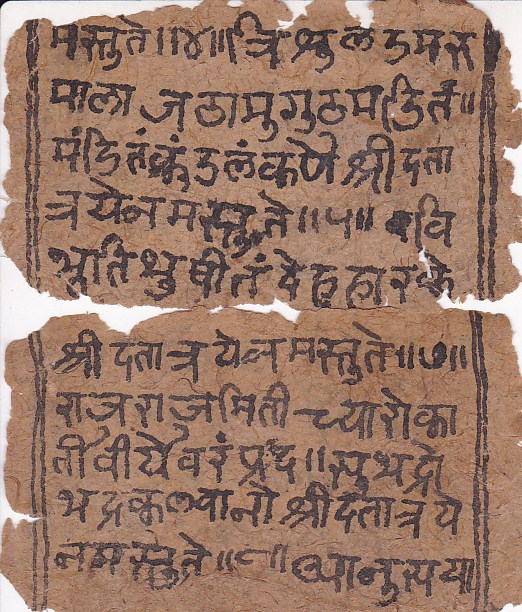 मस्तुते॥४॥त्रिशुलडमरु
माला जठामुगुठमंडितं॥
मंडितंकुंडलंकर्णे श्रीदता
त्रयेनमस्तुते॥५॥ वि
भुतिभुषीतंदेहहारके
श्रीदतात्रयेनमस्तुते॥७॥
राजराजमिती च्यारोका
र्तीवीर्येवरंप्रद॥सुभद्रो
भद्रकल्यानो श्रीदतात्रये
नमस्तुते॥८॥